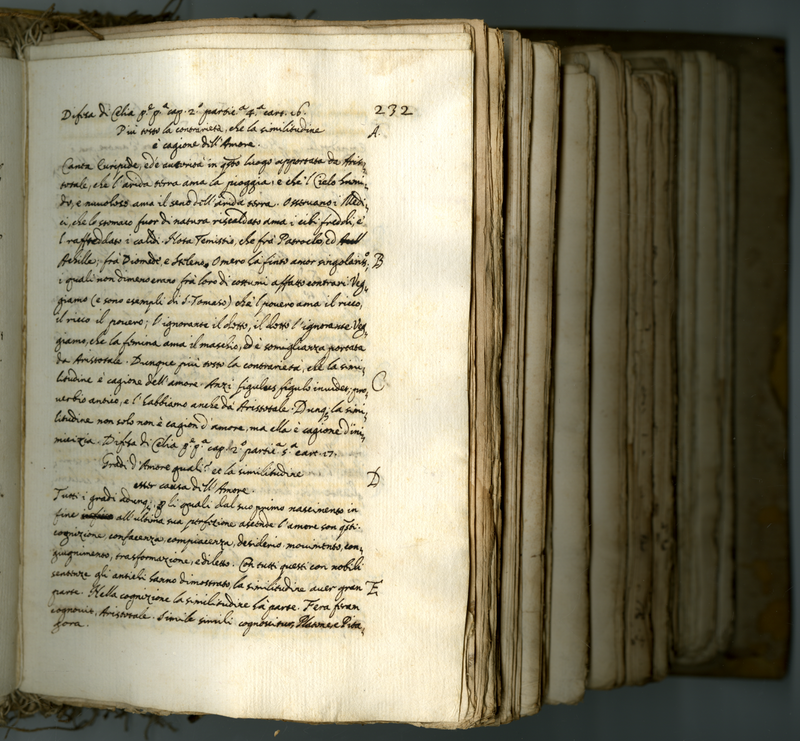 Difesa di Celia pᵉ pᵃ cap. 2° partieᵃ 4ᵃ cart. 16. 232
Più tosto la contrarietà, che la similitudine A
è cagione dell'Amore.
Canta Euripide, ed è autorità in qsto luogo apportata da Aris,,
totale, che l'arida terra ama la pioggia, e che 'l Cielo humi,,
do, e nuvoloso ama il seno dell'arida terra. Osservano i Medi,,
ci, che lo stomaco fuor di natura riscaldato ama i cibi freddi, e
'l raffreddato i caldi. Nota Temistio, che frà Patroclo, ed
Achille; frà Diomede, e Stelenes Omero là finto amor singolariss°, B
i quali non dimeno erano frà loro di costumi affatto contrari. Veg,,
giamo (e sono esempli di S. Tomaso) che 'l povero ama il ricco,
il ricco il povero; l'ignorante il dotto, il dotto l'ignorante. Veg,,
giamo, che la femina ama il maschio, ed è somiglianza portata
da Aristotale. Dunque più tosto la contrarietà, che la simi,,
litudine è cagione dell'amore. Anzi figulus figulo invidet, pro,, C
verbio antico, e l'habbiamo anche da Aristotale. Dunq; la simi,,
litudine non solo non è cagion d'amore, ma ella è cagione d'ini,,
micizia. Difesa di Celia pᵉ pᵃ cap. 2° partieᵃ 5ᵃ cart. 17.
Gradi d'Amore quali, et la similitudine D
esser causa dell'Amore.
Tutti i gradi adunq; p li quali dal suo primo nascimento in
fine all'ultima sua perfezione ascende l'amore son qsti.
cognizione, confacenza, compiacenza, desiderio, movimento, con,,
giugnimento, trasformazione, e diletto. Con tutti questi con nobili
sentenze gli antichi hanno dimostrato, la similitudine aver gran E
parte. Nella cognizione la similitudine hà parte. Fera feram
cognovit, Aristotale. Simile simili cognoscitur, Platone, e Pita,,
gora.